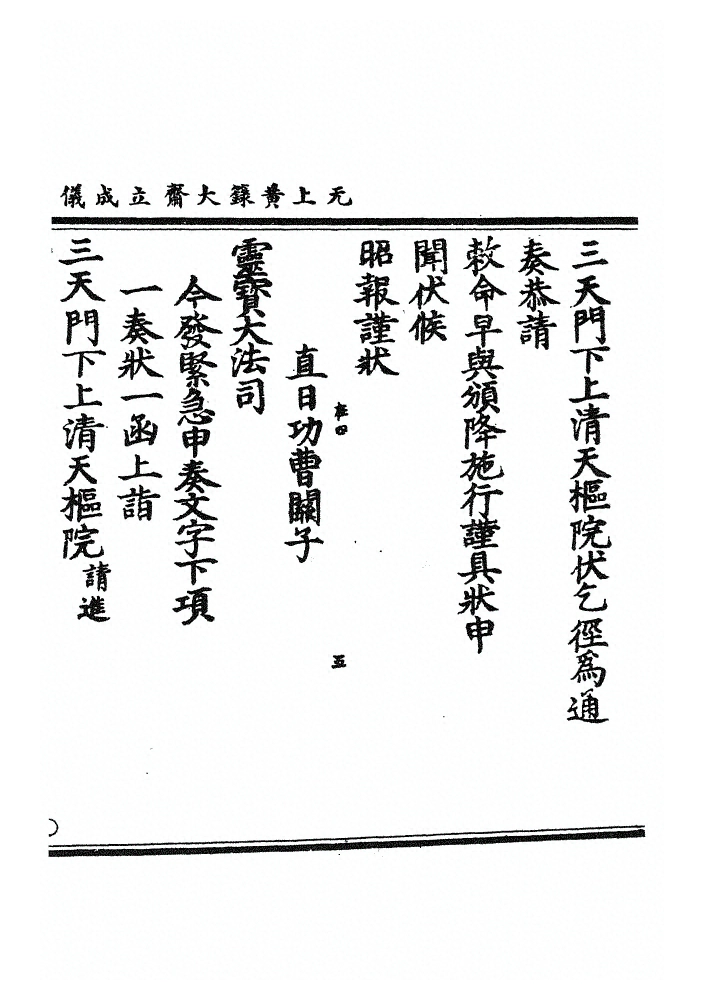 无上黄籙大齋立成儀
三天門下上清天樞院伏乞徑爲通
奏恭請
敕命早與頒降施行謹具狀申
聞伏候
昭報謹狀
在四
五
直日功曹關子
靈寶大法司
今發緊急申奏文字下項
一奏狀一函上詣
三天門下上清天樞院請進